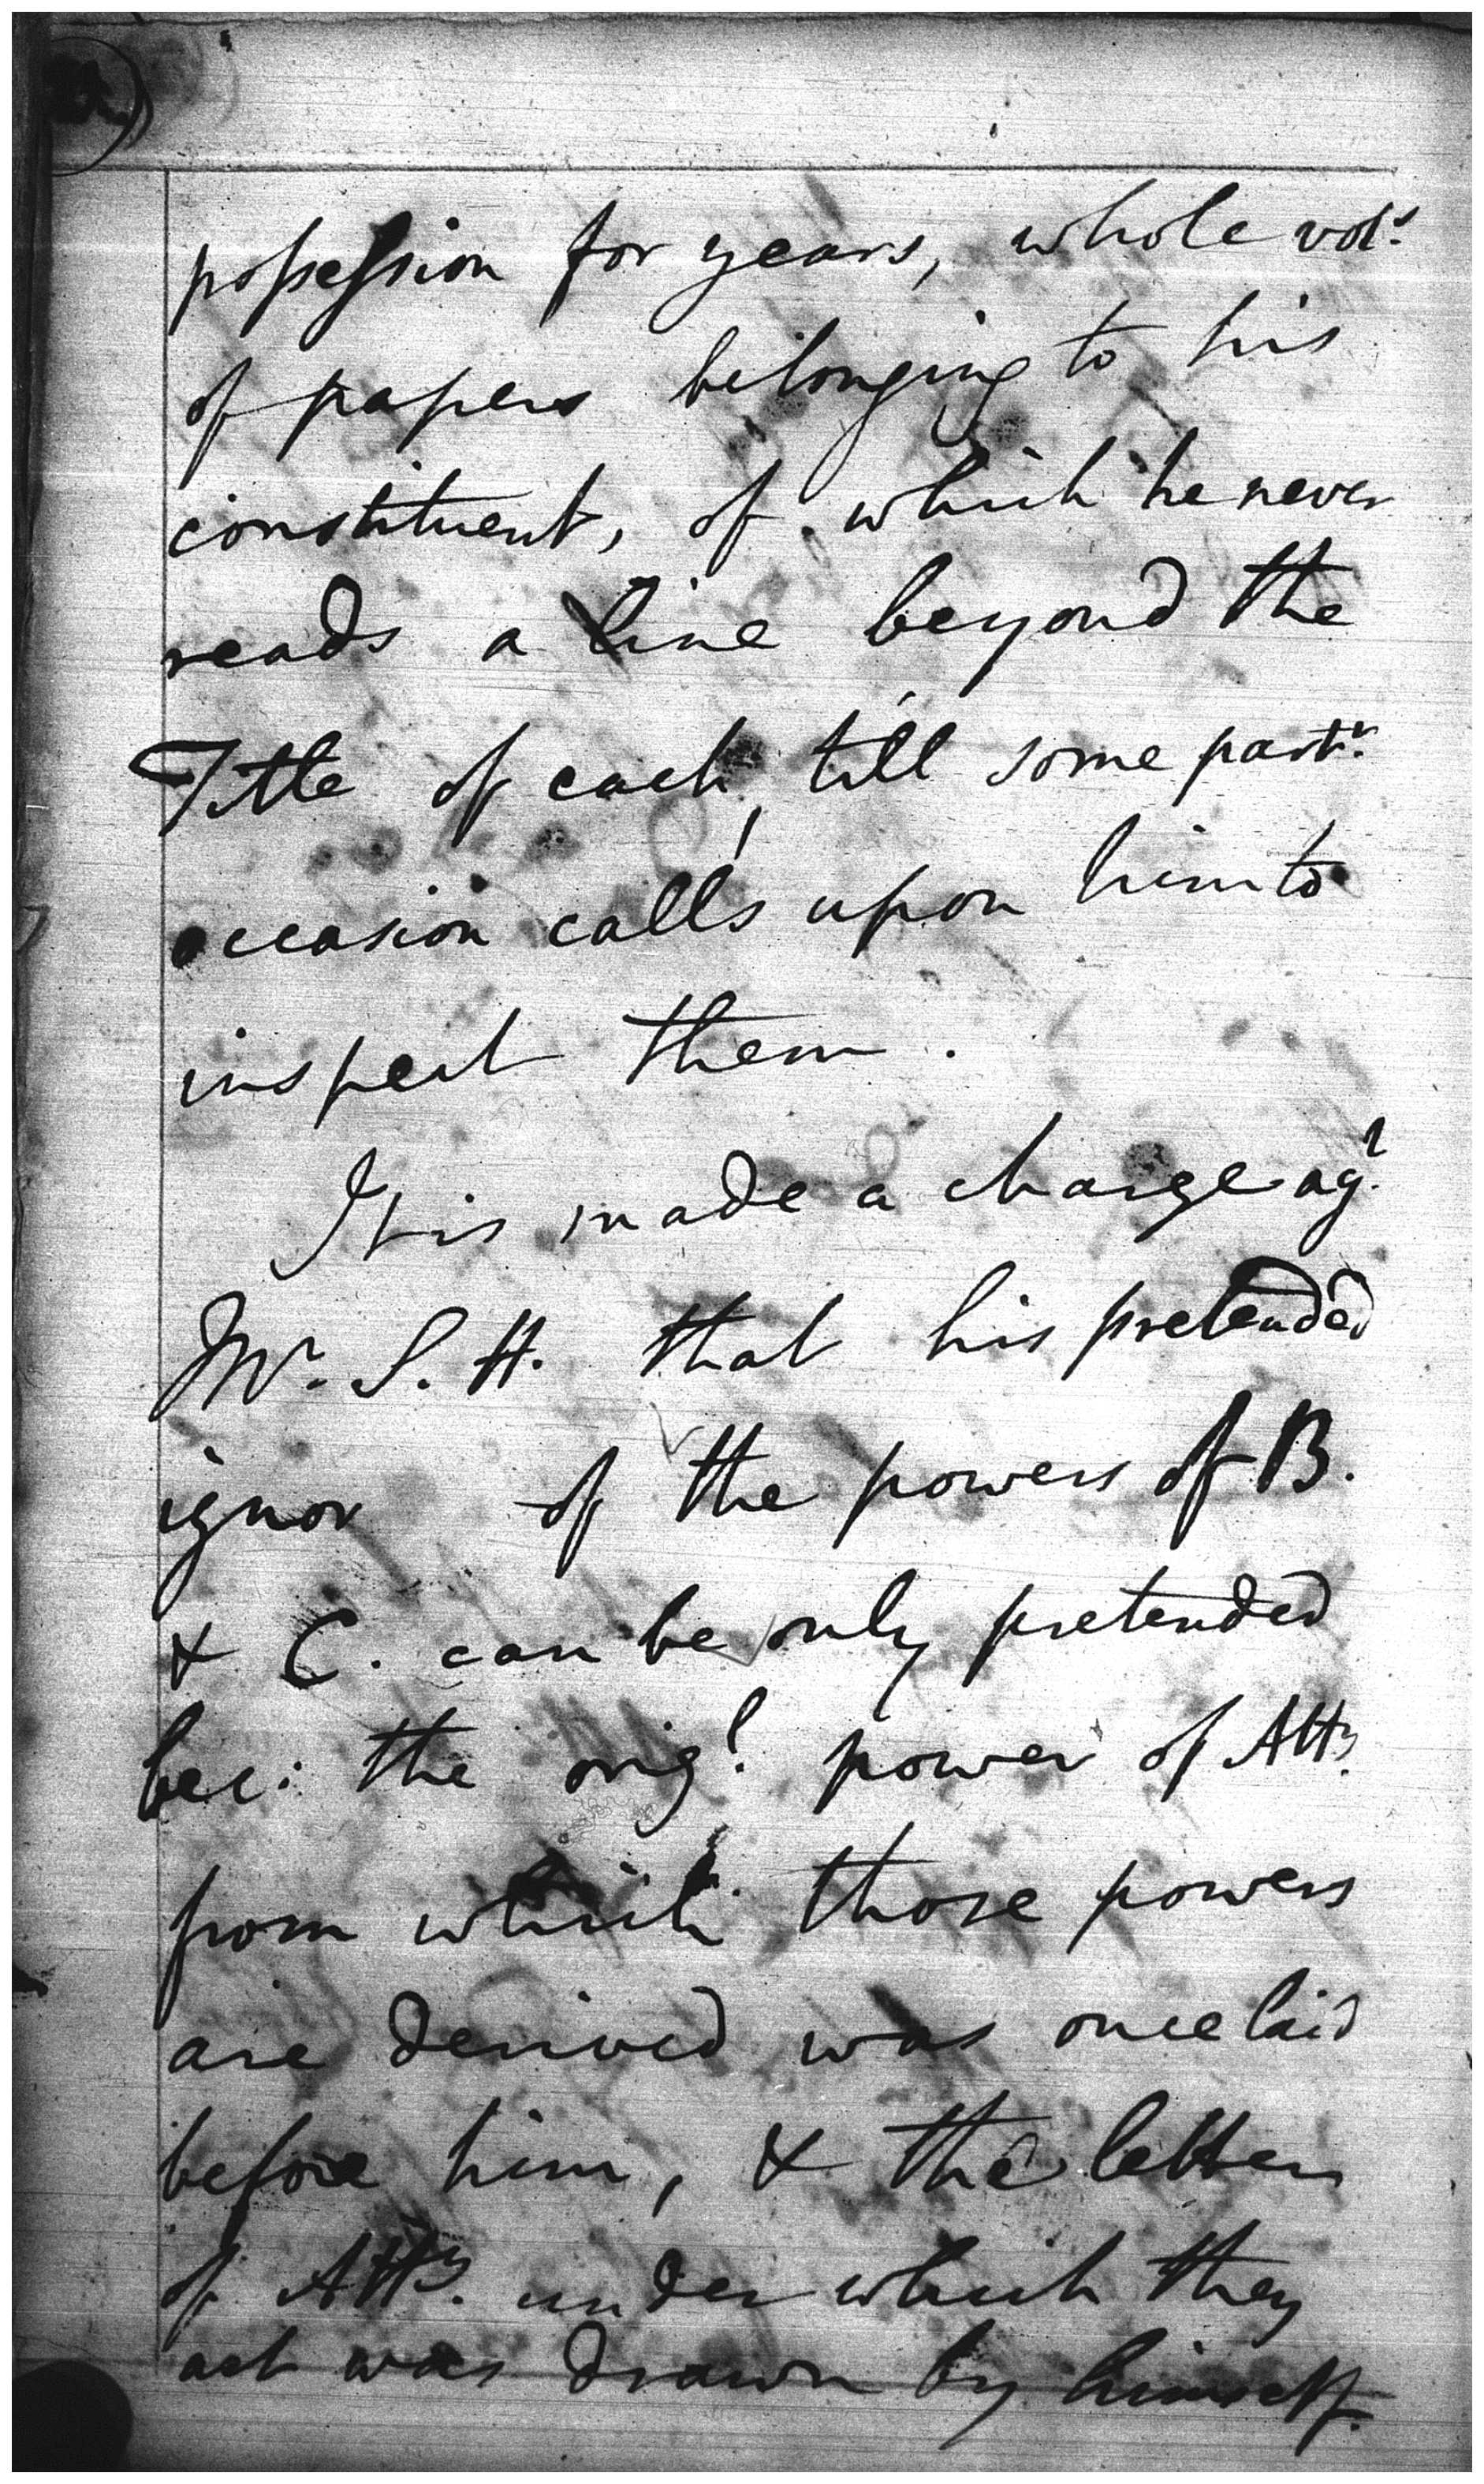 possession for years, whole vols.
of papers belonging to his
constituent, of which he never
reads a line beyond the
Title of each, till some partr.
occasion calls upon him to
inspect them.
It is made a charge agt.
Mr. S. H. that his pretended
ignor of the powers of B.
& C. can be only pretended
bec: the origl. power of Atty.
from which those powers
are derived was once laid
before him, & the letters
of Atty. under which they
act was drawn by himself.